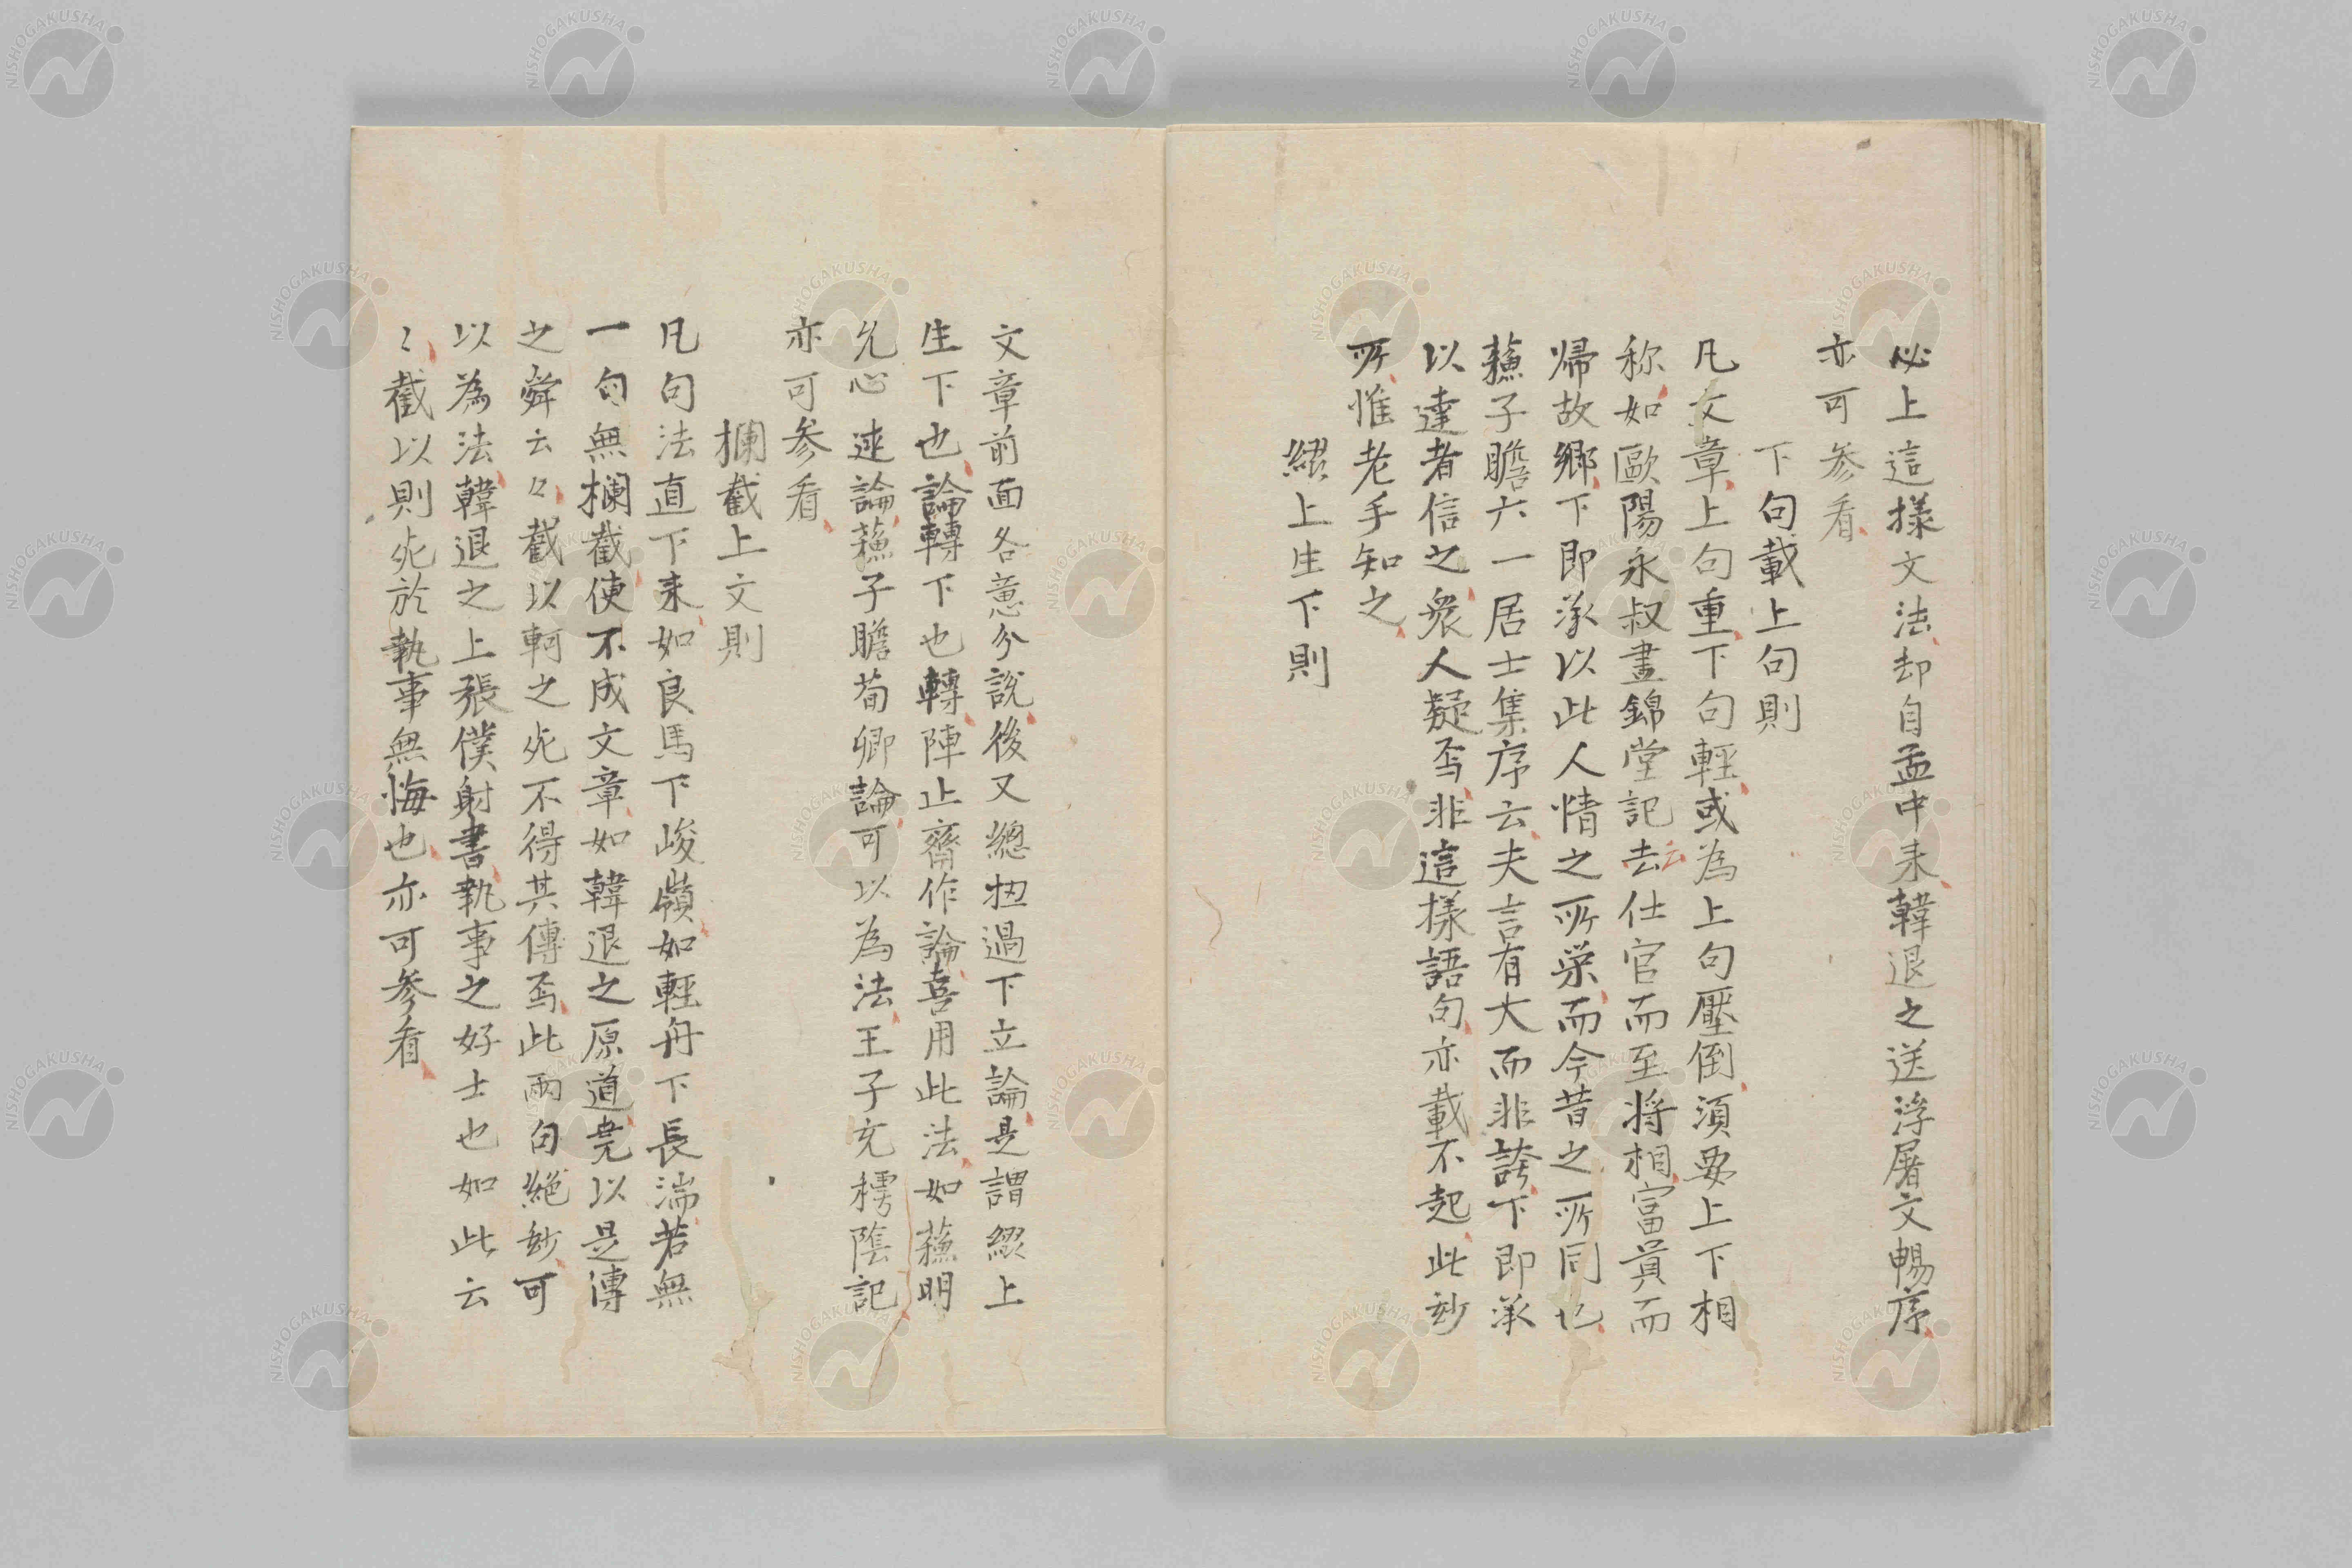 必上這様文法却自孟中来韓退之送浮屠文暢序
亦可参看
下句載上句則
凡文章上句重下句輕或為上句壓倒湏要上下相
称如歐陽永叔晝錦堂記去云仕官而至将相富貴而
帰故郷下即承以此人情之所榮而今昔之所同也
蘓子瞻六一居士集序云夫言有大而非誇下即承
以達者信之衆人疑焉非這様語句亦載不起此玅
所惟老手知之
綴上生下則
文章前面各意分說後又總扭過下立論是謂綴上
生下也論轉下也轉陣止齋作論喜用此法如蘓明
允心逑論蘓子瞻荀卿論可以為法王子充樗隂記
亦可参看
攔截上文則
凡句法直下来如良馬下峻嶺如輕舟下長湍若無
一句無攔截使不成文章如韓退之原道尭以是傳
之舜云々截以軻之死不得其傳焉此兩句絶玅可
以為法韓退之上張僕射書執事之好士也如此云
〻截以則死於執事無悔也亦可参看
NISHOGAKUSHA